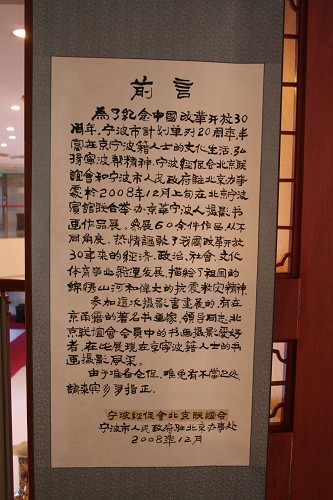 前言
為了紀念中國改革开放30
周年,宁波市計划单列20周年,丰
富在京宁波籍人士的文化生活,弘
揚宁波帮精神,宁波經促会北京联
誼會和宁波市人民政府駐北京办事
處於2008年12月上旬在北京宁波
賓館联合举办京華宁波人攝影书
画作品展,参展60余件作品,从不
同角度,热情謳歌了我國改革开放
30年来的經济、政治、社會、文化
体育事业飛速发展,描绘了祖国的
錦綉山河和偉大的抗震救灾精神。
参加這次攝影書畫展的,有在
京甬籍的著名书画家,領导同志,北
京联誼會会员中的书画攝影爱好
者,在此展現在京宁波籍人士的书
画攝影风采。
由于准备仓促,难免有不當之处,
請来宾多多指正。
宁波經促會北京联誼会
宁波市人民政府駐北京办事处
2008年12月